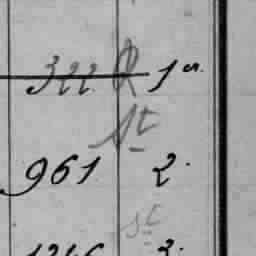 322 R 1er.
St
961 2.
St
1246 3.